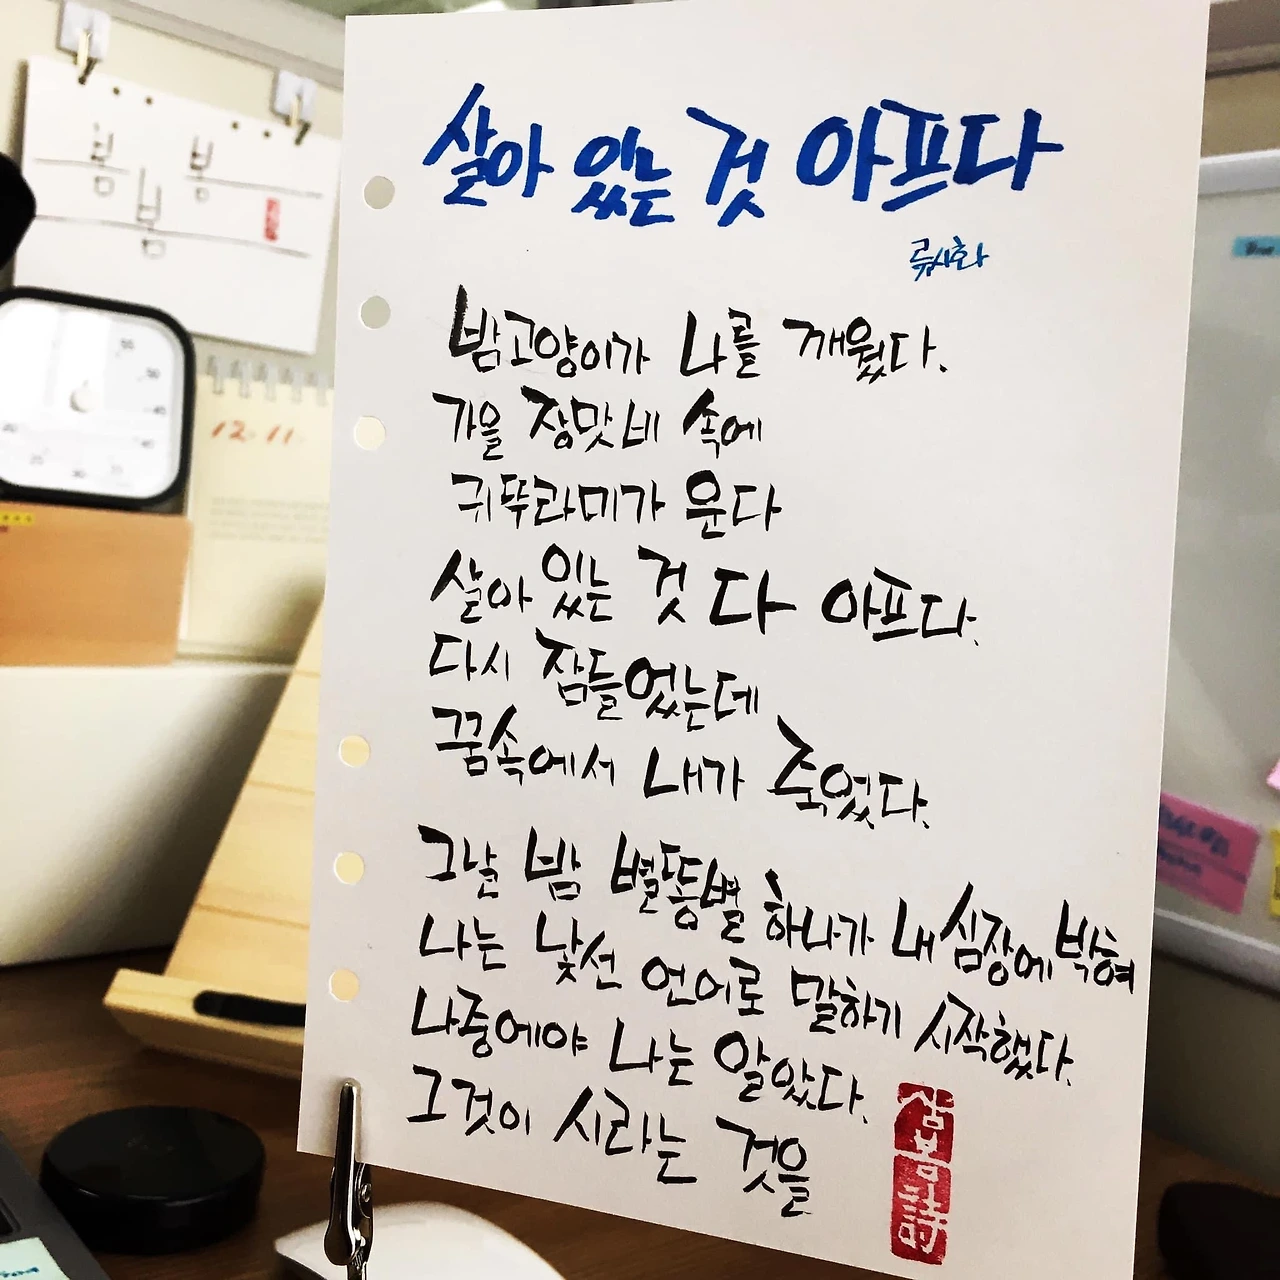 살아 있는 것 아프다
류시화
밤고양이가 나를 깨웠다.
가을 장맛비 속에
귀뚜라미가 운다
살아 있는 것 다 아프다.
다시 잠들었는데
꿈속에서 내가 죽었다.
그날 밤 별똥별 하나가 내 심장에 박혀
나는 낯선 언어로 말하기 시작했다.
나중에야 나는 알았다.
그것이 시라는 것을
봄
봄
봄
12.11